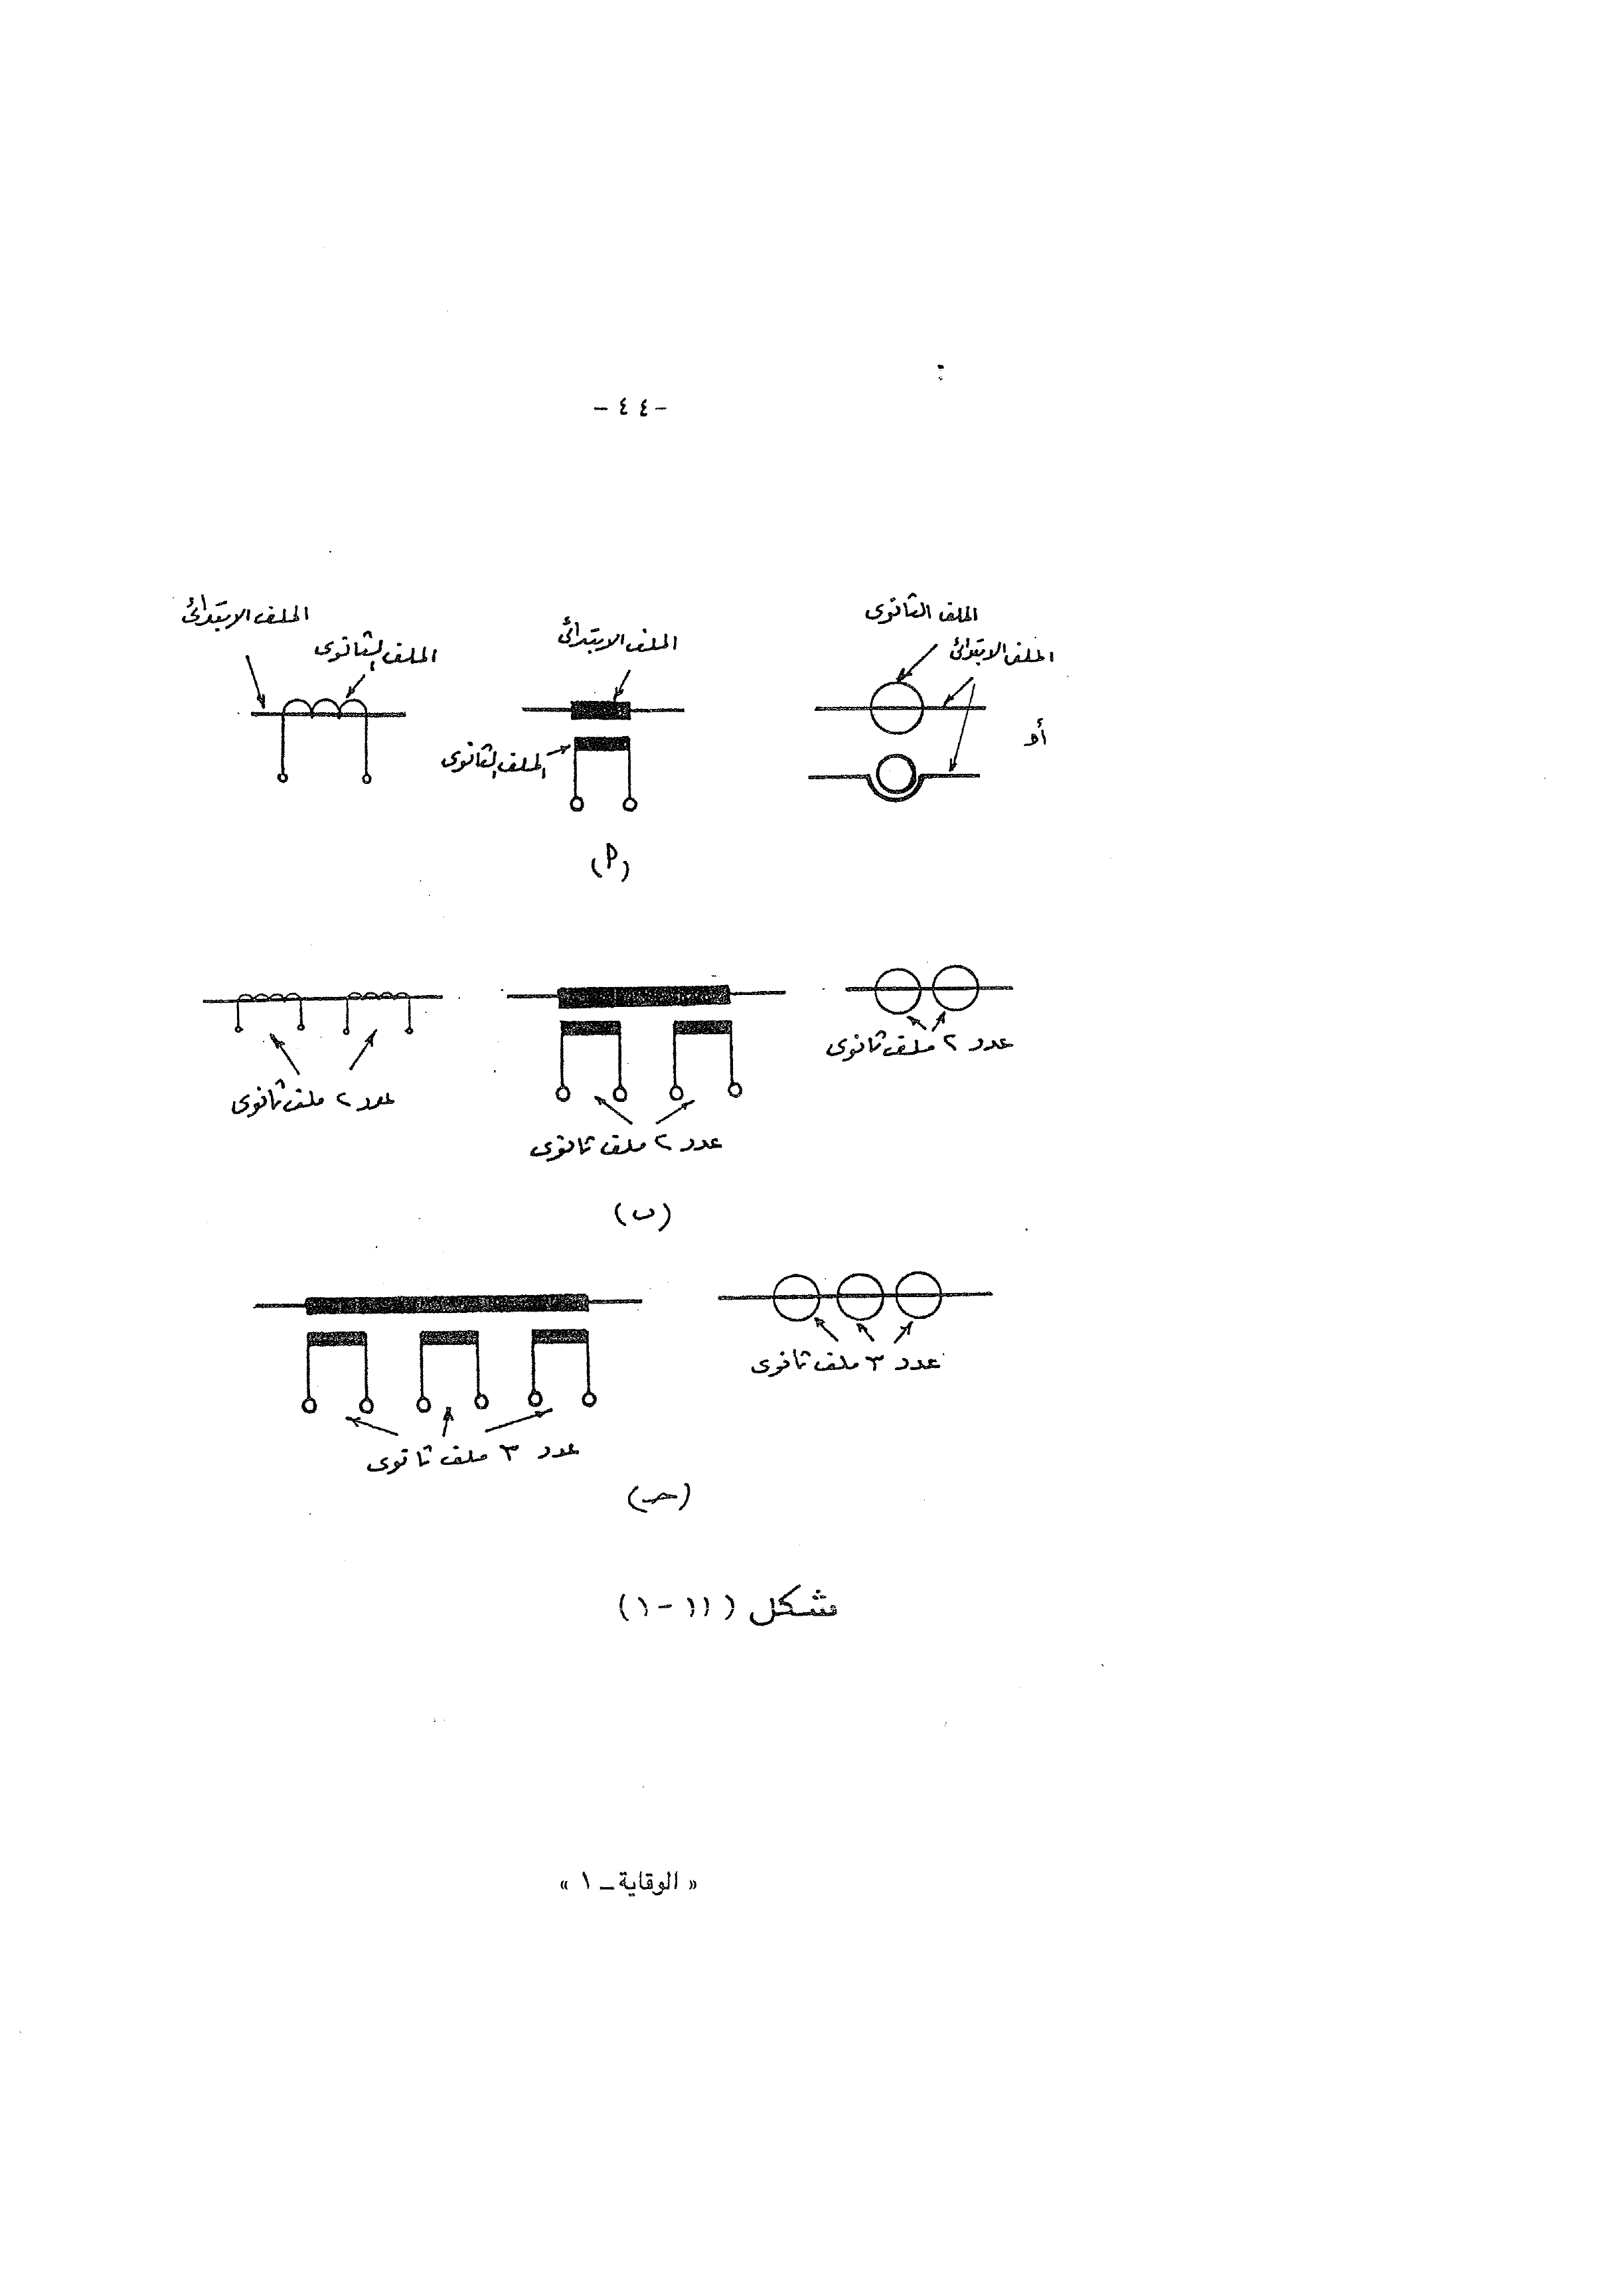 - ٤٤ -
الملف الثانوى
الملف الابتدائى
أو
الملف الابتدائى
الملف الثانوى
الملف الابتدائى
الملف الثانوى
(أ)
عدد ٢ ملف ثانوى
عدد ٢ ملف ثانوى
عدد ٢ ملف ثانوى
(ب)
عدد ٣ ملف ثانوى
عدد ٣ ملف ثانوى
(جـ)
شكل (١١-١)
« الوقاية ـ ١ »